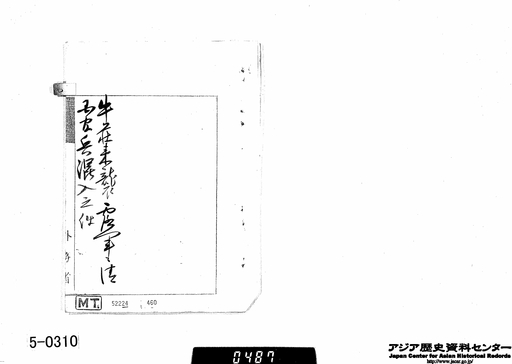 牛荘来襲露軍ニ清
国官兵混入之件
外務省
MT. 52224 460
5-0310
0487
アジア歴史資料センター
Japan Center for Asian Historical Records
http://www.jacar.go.jp/